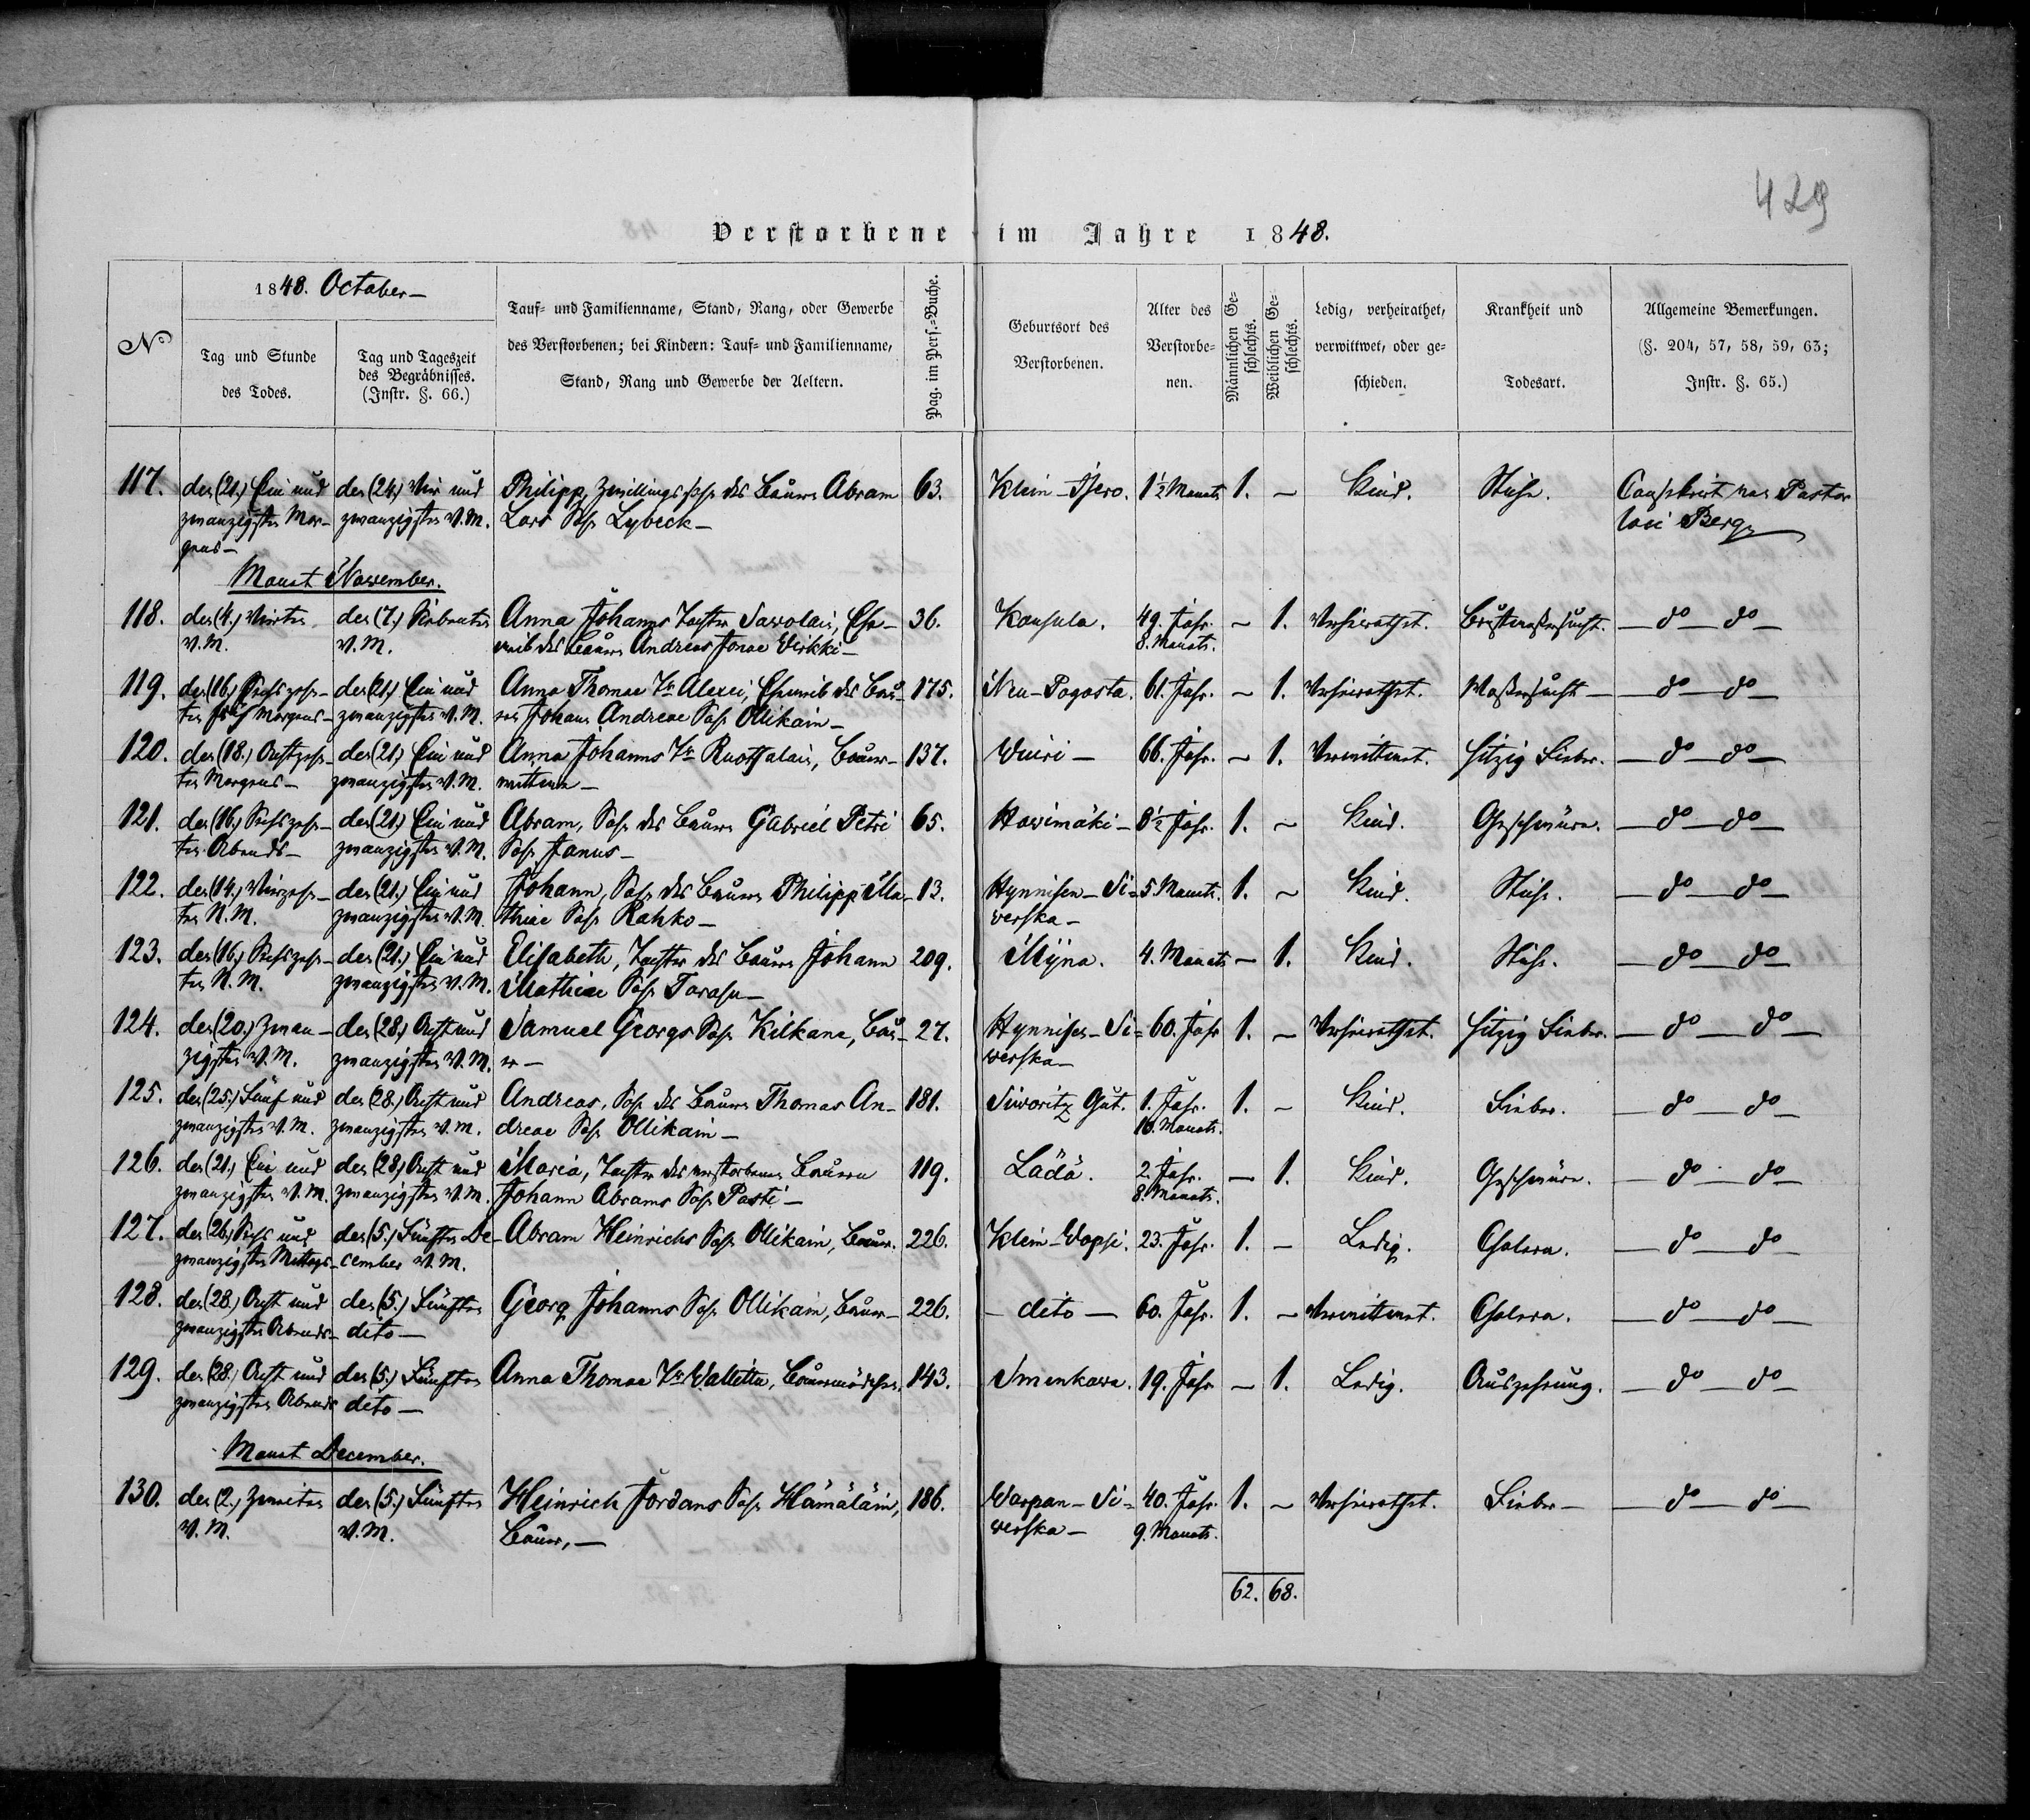 429
Verstorbene im Jahre 1848.
1848. October
No
Tag und Stunde des Todes.
Tag und Tageszeit des Begräbnisses. (Instr. §. 66.)
Tauf= und Familienname, Stand, Rang, oder Gewerbe
des Verstorbenen; bei Kindern: Tauf= und Familienname,
Stand, Rang und Gewerbe der Aeltern.
Pag. im Pers.=Buche.
Geburtsort des Verstorbenen.
Alter des Verstorbe=nen.
Männlichen Ge=schlechts.
Weiblichen Ge=schlechts.
Ledig, verheirathet, verwittwet, oder ge=schieden.
Krankheit und Todesart.
Allgemeine Bemerkungen.
(§. 204, 57, 58, 59, 63;
Instr. §. 65.)
117. den (21.) Ein und den (24.) Vier und Philipp, Zwillingssohn des Bauern Abram 63. Klein-Isero. 1½ Monat 1. – Kind. Pastor
zwanzigsten Mor- zwanzigsten V.M. Lars Sohn Lybeck — Berg
gens —
Monat November.
118. den (4.) Vierten den (7.) Siebenten Anna Johanns Tochter Sawolain, Ehe- 36. 49. Jahr. – 1. Verheirathet. Brustwassersucht. — do — do —
V.M. V.M. weib des Bauern Andreas Jonae Wirkki — 8. Monate.
119. den (16.) Sechszehn- den (21.) Ein und Anna Thomae Tr Alexei, Eheweib des Bau- 175. Neu-Pogosta. 61. Jahr. – 1. Verheirathet. Wassersucht — do — do —
ten früh Morgens — zwanzigsten V.M. ern Johann Andreae Sohn Ollikain —
120. den (18.) Achtzehn- den (21.) Ein und Anna Johanns Tr Ruotsalain, Bauer- 137. Wuiri — 66. Jahr. – 1. Verwittwet. hitzig Fieber. — do — do —
ten Morgens — zwanzigsten V.M. wittwe —
121. den (16.) Sechszehn- den (21.) Ein und Abram, Sohn des Bauern Gabriel Petri 65. Howimäki — 8½ Jahr. 1. – Kind. Geschwüre. — do — do —
ten Abends — zwanzigsten V.M. Sohn Janus —
122. den (14.) Vierzehn- den (21.) Ein und Johann, Sohn des Bauern Philipp Ma- 13. Hynnisen-Si- 5. Monate. 1. – Kind. — do — do —
ten N.M. zwanzigsten V.M. thiae Sohn Rahko — werska —
123. den (16.) Sechszehn- den (21.) Ein und Elisabeth, Tochter des Bauern Johann 209. Myna. 4. Monate — 1. Kind. — do — do —
ten N.M. zwanzigsten V.M. Mathiae Sohn —
124. den (20.) Zwan- den (28.) Acht und Samuel Georgs Sohn Kilkana, Bau- 27. Hynnisen-Si- 60. Jahr 1. – Verheirathet. hitzig Fieber. — do — do —
zigsten V.M. zwanzigsten V.M. er — werska —
125. den (25.) Fünf und den (28.) Acht und Andreas, Sohn des Bauern Thomas An- 181. Siworitz Gut. 1. Jahr. 1. – Kind. Fieber. — do — do —
zwanzigsten V.M. zwanzigsten V.M. dreae Sohn Ollikain — 10. Monate.
126. den (21.) Ein und den (28.) Acht und Maria, Tochter des verstorbenen Bauern 119. Lädä. 2. Jahr. — 1. Kind. Geschwüre. — do — do —
zwanzigsten V.M. zwanzigsten V.M. Johann Abrams Sohn Pasti — 8. Monate.
127. den (26.) Sechs und den (5.) Fünften De- Abram Heinrichs Sohn Ollikain, Bauer. 226. Klein-Wopsi. 23. Jahr. 1. – Ledig. Cholera. — do — do —
zwanzigsten Mittags — cember V.M.
128. den (28.) Acht und den (5.) Fünften Georg Johanns Sohn Ollikain, Bauer — 226. — dito — 60. Jahr. 1. – Verwittwet. Cholera. — do — do —
zwanzigsten Abends — dito —
129. den (28.) Acht und den (5.) Fünften Anna Thomae Tr Wallittu, Bauermädchen. 143. Smenkowa. 19. Jahr — 1. Ledig. Auszehrung. — do — do —
zwanzigsten Abends dito —
Monat December.
130. den (2.) Zweiten den (5.) Fünften Heinrich Jordans Sohn Hämäläin, 186. Warpan-Si- 40. Jahr. 1. – Verheirathet. Fieber — do — do —
V.M. V.M. Bauer, — werska — 9. Monate.
62. 68.